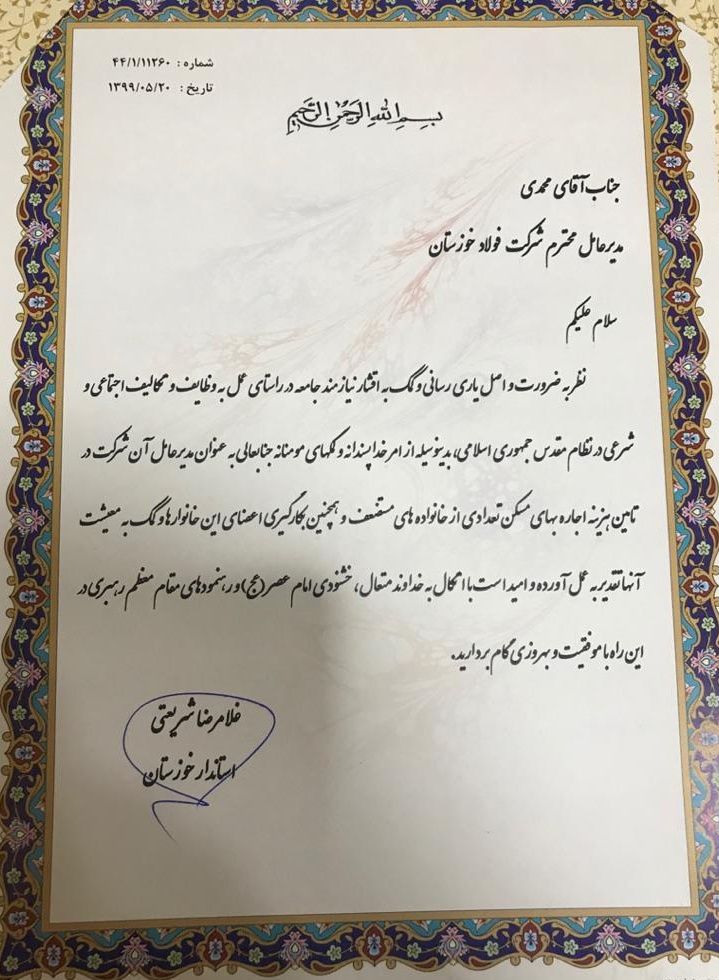 شماره : ۴۴/۱/۱۱۲۶۰
تاریخ : ۱۳۹۹/۰۵/۲۰
بسم الله الرحمن الرحیم
جناب آقای محمدی
مدیرعامل محترم شرکت فولاد خوزستان
سلام علیکم
نظر به ضرورت و اصل یاری رسانی و کمک به اقشار نیازمند جامعه در راستای عمل به وظایف و تکالیف اجتماعی و
شرعی در نظام مقدس جمهوری اسلامی، بدینوسیله از امر خداپسندانه و کمکهای مومنانه جنابعالی به عنوان مدیرعامل آن شرکت در
تامین هزینه اجاره بهای مسکن تعدادی از خانواده های مستضعف و همچنین بکارگیری اعضای این خانوارها و کمک به معیشت
آنها تقدیر به عمل آورده و امید است با اتکال به خداوند متعال، خشنودی امام عصر(عج) و رهنمودهای مقام معظم رهبری در
این راه با موفقیت و بهروزی گام بردارید.
غلامرضا شریعتی
استاندار خوزستان